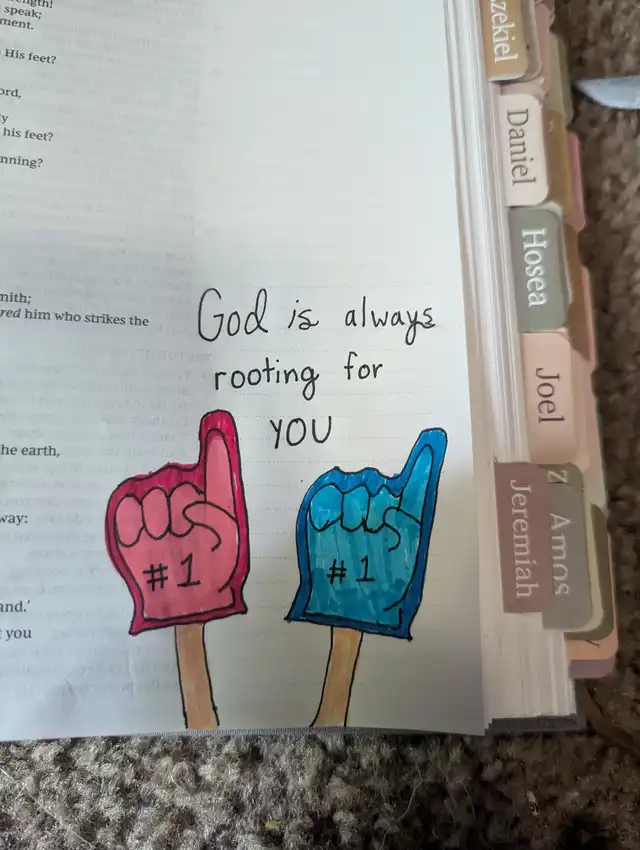 speak;
ment.
His feet?
ord,
y
his feet?
nning?
mith;
red him who strikes the
he earth,
way:
and.'
you
God is always
rooting for
YOU
#1
#1
zekiel
Daniel
Hosea
Joel
Jeremiah
Z
Amos